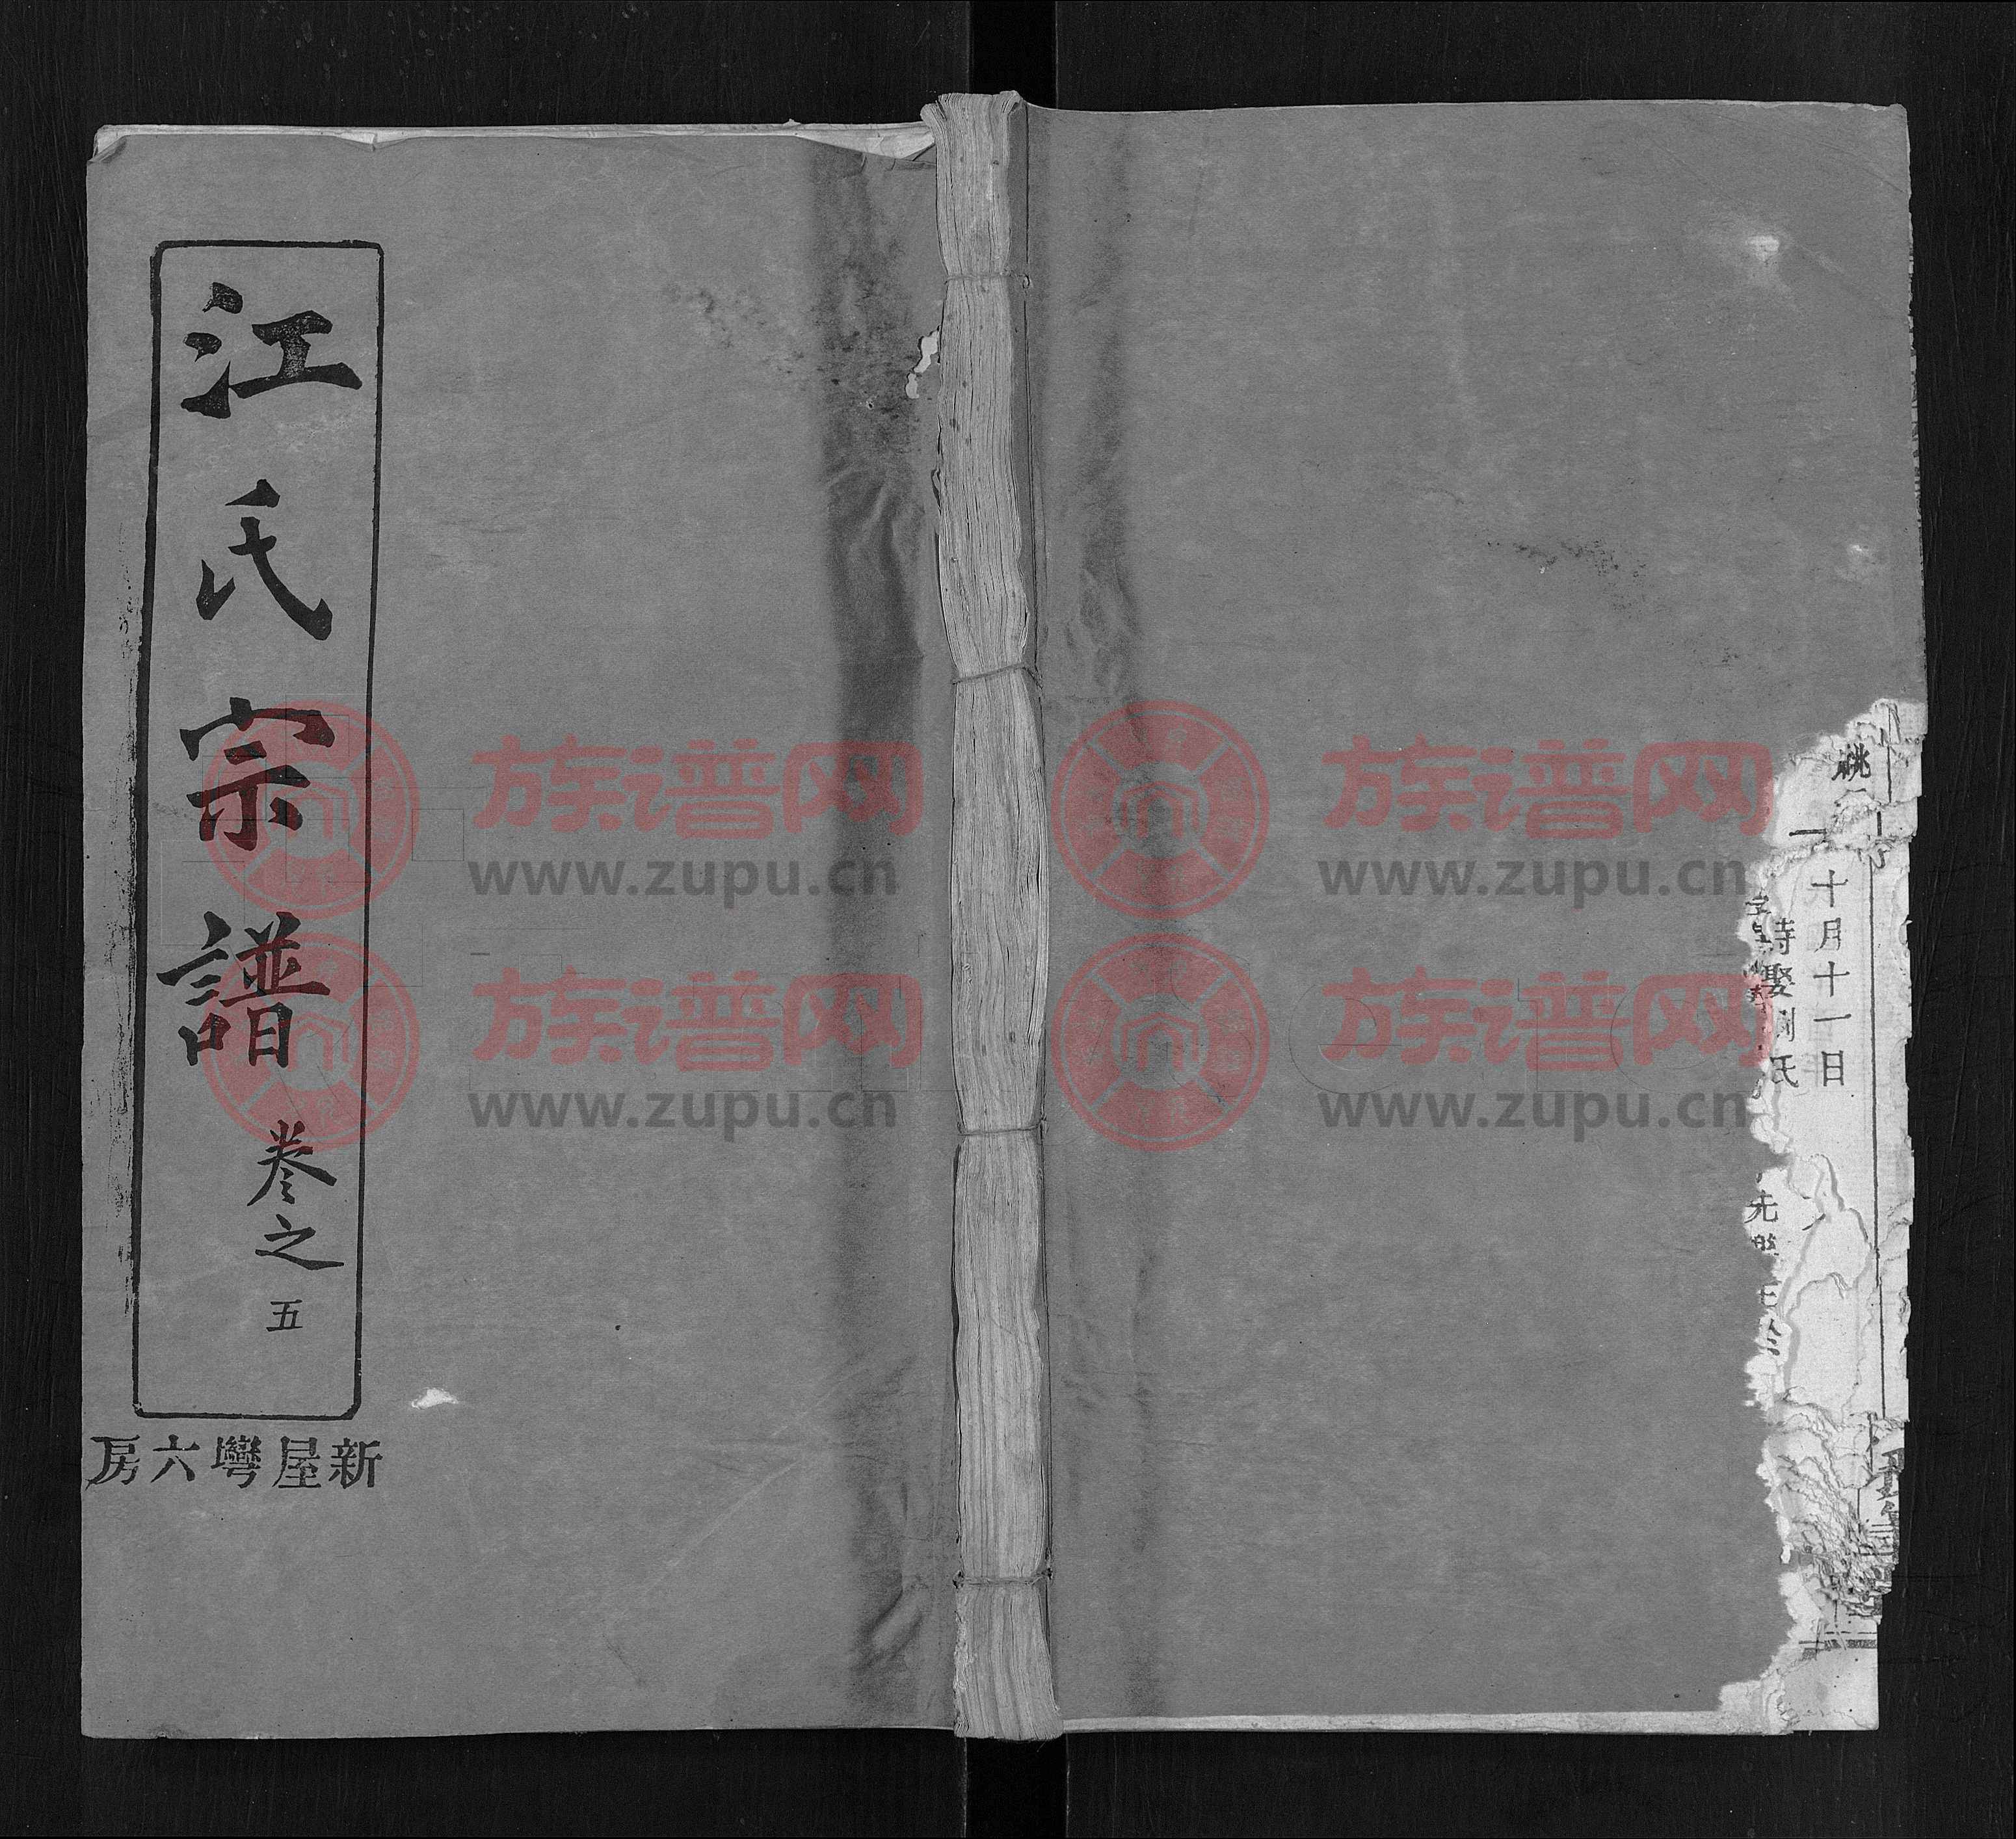 江氏宗譜
卷之五
新屋灣六房
十月十一日
娶劉氏
族谱网
www.zupu.cn
族谱网
www.zupu.cn
族谱网
www.zupu.cn
族谱网
www.zupu.cn